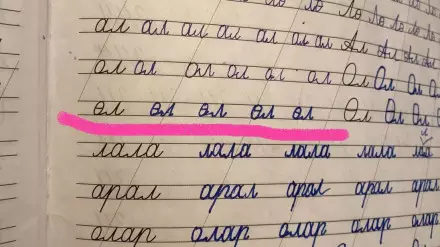 ал ал ал ал ал ал ал Ал Ал Ал
ол ол ол ол ол ол Ол Ол Ол
өл өл өл өл өл Өл Өл Өл
лала лала лала лала лала
арал арал арал арал арал
олар олар олар олар олар